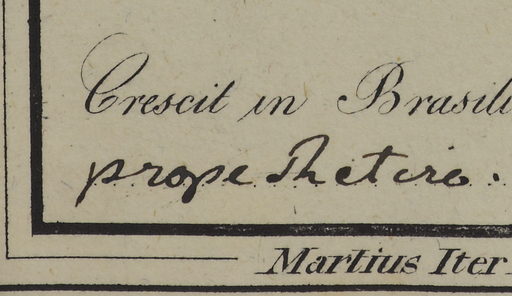 Crescit in Brasili
prope
Martius Iter